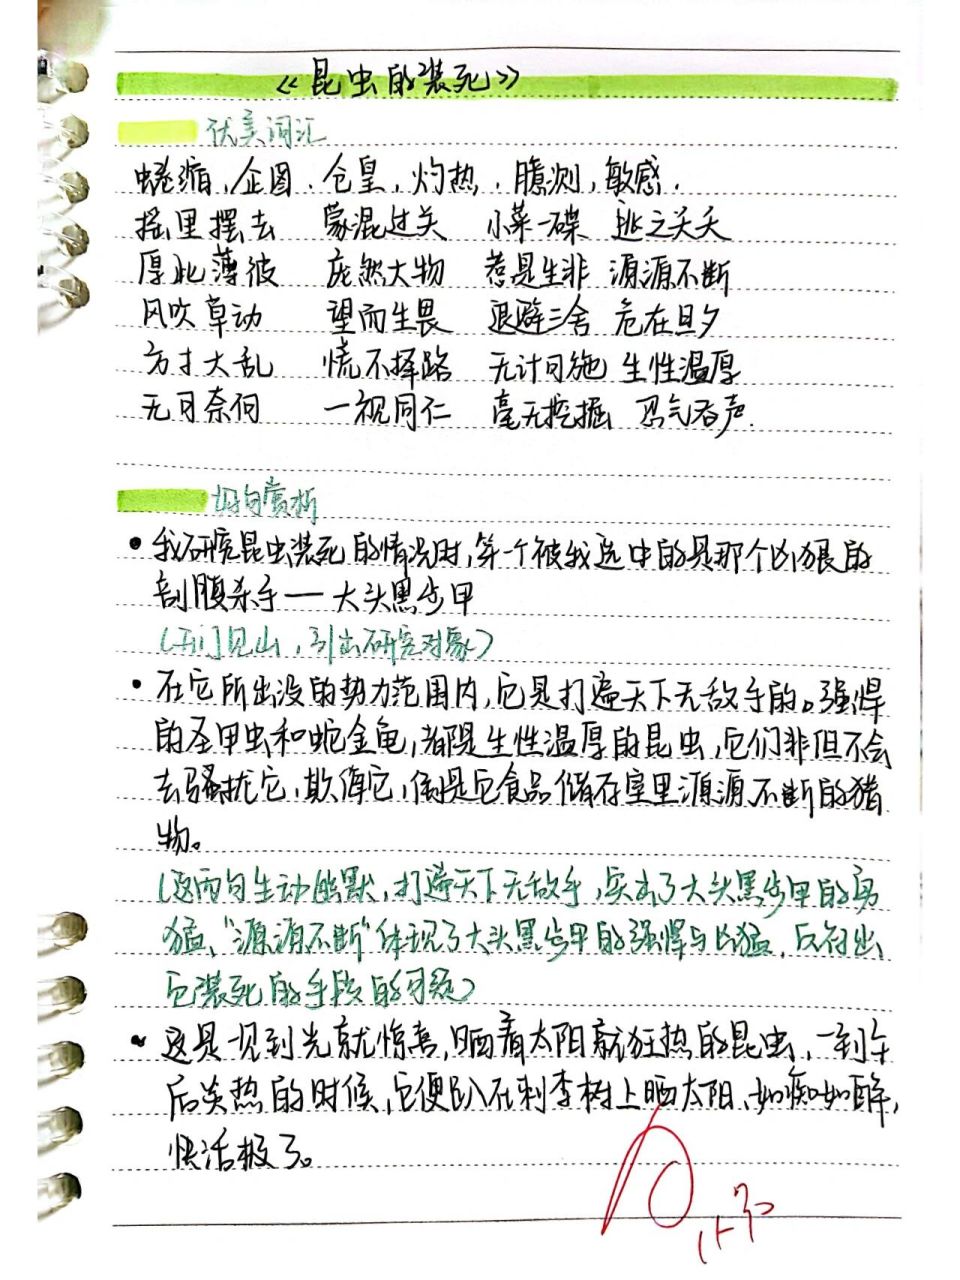 《昆虫的装死》
优美词汇
蜷缩、企图、仓皇,灼热、臆测,敏感.
摇里摆去 蒙混过关 小菜一碟 逃之夭夭
厚此薄彼 庞然大物 惹是生非 源源不断
风吹草动 望而生畏 退避三舍 危在旦夕
方寸大乱 慌不择路 无计可施 生性温厚
无可奈何 一视同仁 毫无挖掘 忍气吞声.
好句赏析
• 我研究昆虫装死的情况时,第一个被我选中的是那个凶狠的
剖腹杀手——大头黑步甲
(开门见山,引出研究对象)
• 在它所出没的势力范围内,它是打遍天下无敌手的。强悍
的圣甲虫和蛇金龟,都是生性温厚的昆虫,它们非但不会
去骚扰它,欺侮它,倒是它食品储存室里源源不断的猎
物。
(这两句生动幽默,打遍天下无敌手,突出了大头黑步甲的勇
猛、"源源不断"体现了大头黑步甲的强悍与凶猛,反衬出
它装死的手段的可疑)
• 这是一见到光就惊喜,晒着太阳就狂热的昆虫,一到午
后炎热的时候,它便趴在刺李树上晒太阳、如痴如醉,
快活极了。